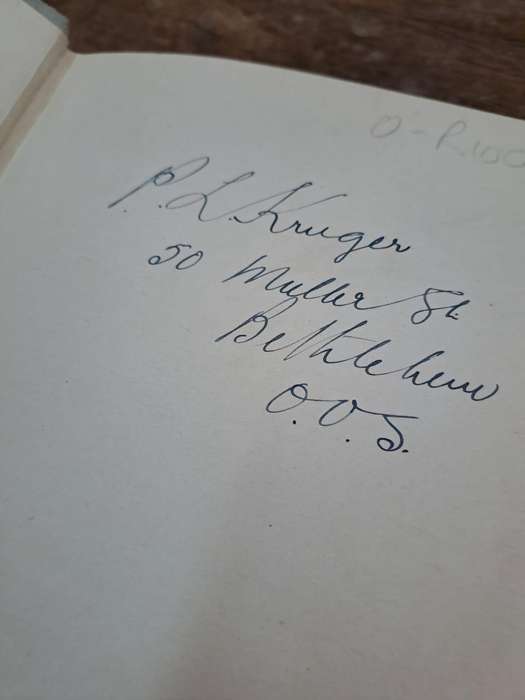 O-R100
P.L. Kruger
50 Muller St.
Bethlehem
O.V.S.